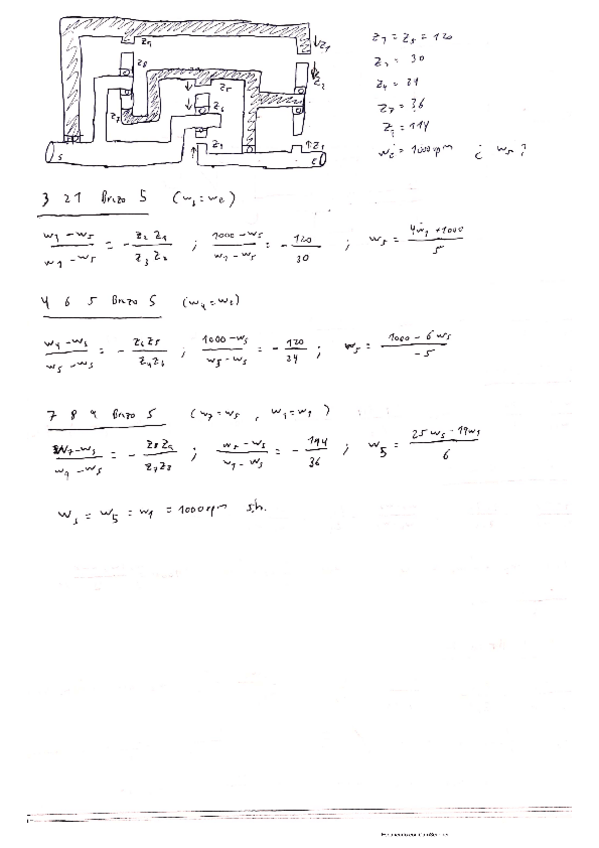 z9
z8
z7
z5
z6
z3
z1
z2
z1
s
e
z1 = z5 = 120
z3 = 30
z4 = 21
z7 = 36
z9 = 114
we = 1000 rpm ¿ ws ?
3 2 1 Brazo 5 (w3 = we)
w3 - w5 / w1 - w5 = - z2 z1 / z3 z2 ; 1000 - w5 / w1 - w5 = - 120 / 30 ; w5 = 4w1 + 1000 / 5
4 6 5 Brazo S (w4 = we)
w4 - ws / w5 - ws = - z6 z5 / z4 z6 ; 1000 - ws / w5 - ws = - 120 / 24 ; w5 = 1000 - 6 ws / -5
7 8 9 Brazo S (w7 = w5 , w9 = w1)
w7 - ws / w9 - ws = - z8 z9 / z7 z8 ; w5 - ws / w1 - ws = - 114 / 36 ; w5 = 25 ws - 19 w1 / 6
ws = w5 = w1 = 1000 rpm s.h.